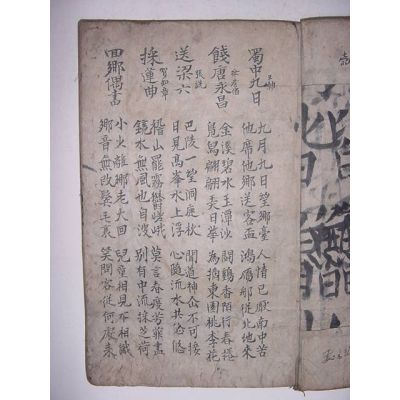 蜀中九日
王勃
九月九日望鄉臺 人情已厭南中苦
他席他鄉送客盃 鴻雁那從北地來
餞唐永昌
徐彥伯
金溪碧水玉潭沙 鬭鷄香陌行春倦
鳧舄翩翩弄日華 為摘東園桃李花
送梁六
張説
巴陵一望洞庭秋 聞道神仙不可接
日見高峯水上浮 心隨流水共悠悠
採蓮曲
賀知章
稽山罷霧鬱嵯峨 莫言春度芳菲盡
鏡水無風也自波 別有中流採芰荷
回鄉偶書
小少離鄉老大回 兒童相見不相識
鄉音無改鬢毛衰 笑問客從何處來